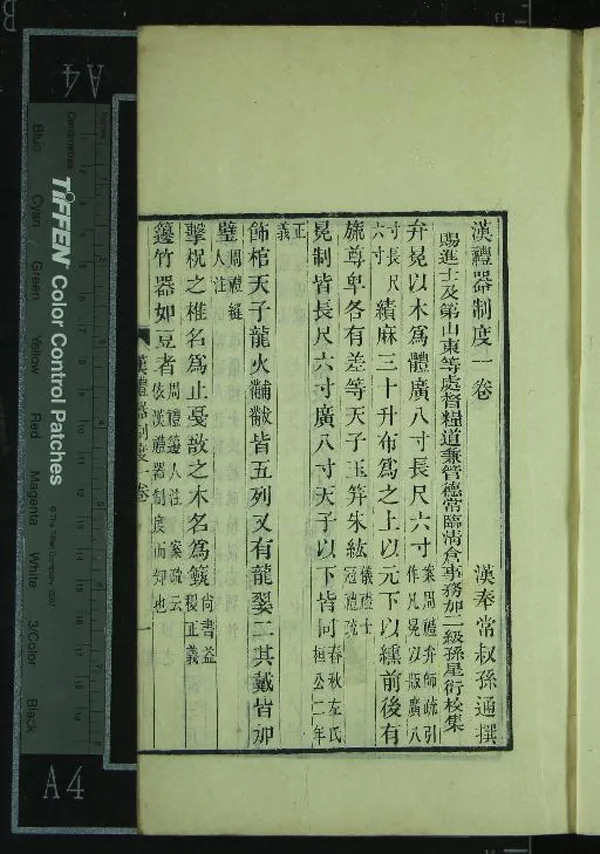 漢禮器制度一卷 漢奉常叔孫通撰
賜進士及第山東等處督糧道兼管德常臨清倉事務加二級孫星衍校集
弁冕以木爲體廣八寸長尺六寸案周禮弁師疏引作凡冕以版廣八
寸長尺六寸績麻三十升布爲之上以元下以纁前後有
旒尊卑各有差等天子玉笄朱紘儀禮士冠禮疏
冕制皆長尺六寸廣八寸天子以下皆同春秋左氏桓公二年
正義
飾棺天子龍火黼黻皆五列又有龍翣二其戴皆加
璧周禮縫人注
擊柷之椎名爲止戛敔之木名爲籈尚書益稷正義
籩竹器如豆者周禮籩人注 案疏云依漢禮器制度而知也
漢禮器制度一卷 一
A4
Centimetres
TIFFEN Color Control Patches
© The Tiffen Company, 2007
Blue Cyan Green Yellow Red Magenta White 3/Color Black
A4